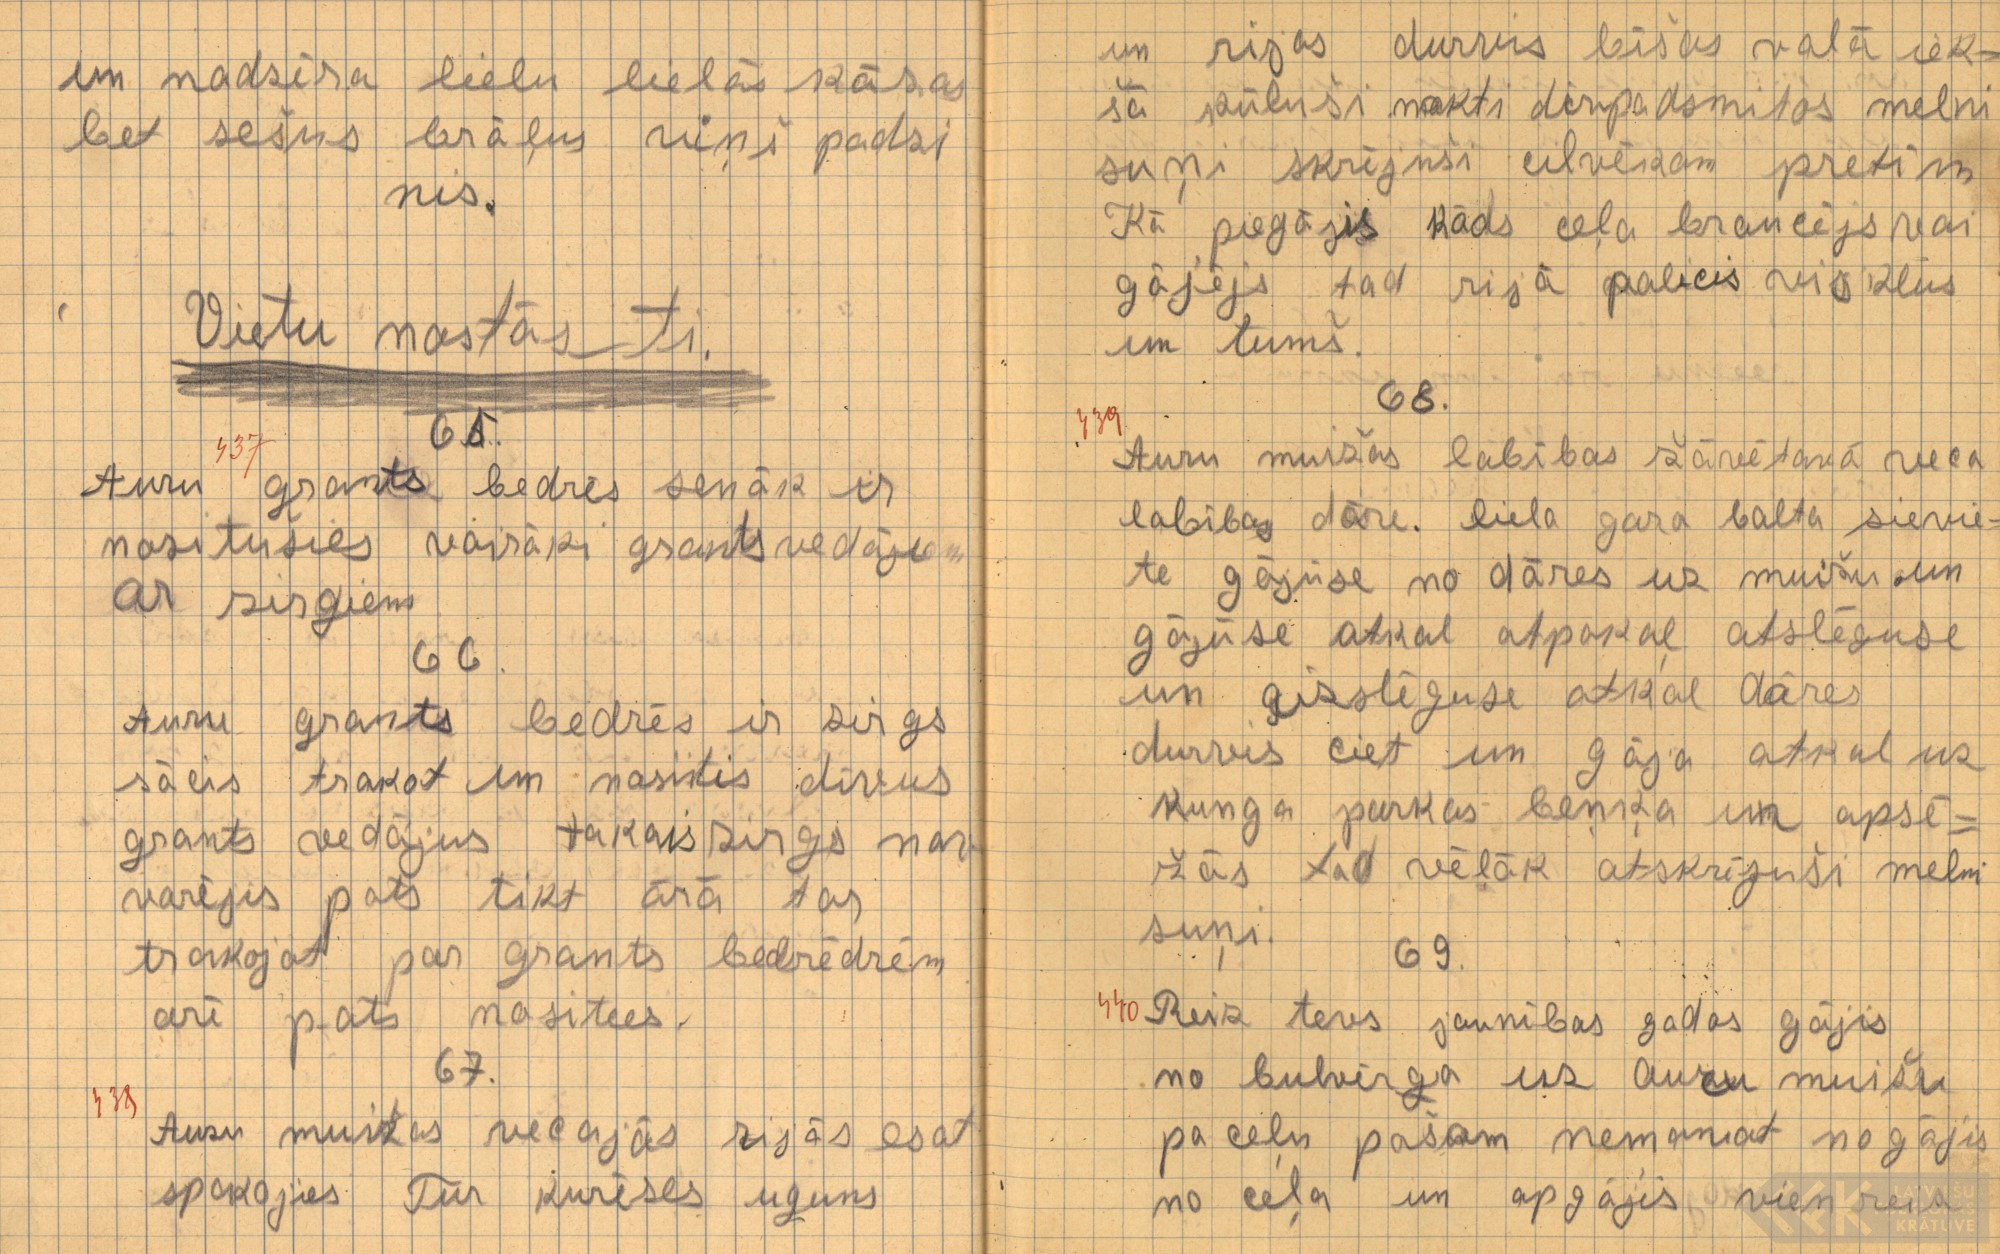 un nodzēra lielu lielās kāzas
bet sešus brāļus viņš padzi
nis.
Vietu nostāsti.
65.
437
Auru grants bedrēs senāk ir
nositušies vairāki grantsvedājiem
ar zirgiem
66.
Auru grants bedrēs ir zirgs
sācis trakot un nositis divus
grants vedājus takais zirgs nav
varējis pats tikt ārā tas
trakojot par grants bedrēdrēm
arī pats nositees.
67.
438
Auru muižas vecajās rijās esot
spokojies Tur kurēses uguns
un rijas durvis bīšas vaļā iek-
šā kūluši nakti divpadsmitos melni
suņi skrējuši cilvēkam pretim
Kā piegājis kāds ceļa braucējs vai
gājējs tad rijā palicis viss klus
un tumš.
68.
439
Auru muižas labības žāvētavā veca
labības dāre. liela gara balta sievie-
te gājuse no dāres uz muižu un
gājuse atkal atpakaļ atslēguse
un aizslēguse atkal dāres
durvis ciet un gāja atkal uz
kunga parkas beņķa un apsē-
žās tad vēlāk atskrējuši melni
suņi.
69.
440
Reiz tevs jaunības gados gājis
no bulvirga uz auru muižu
pa ceļu pašam nemanot nogājis
no ceļa un apgājis vien
LATVIEŠU FOLKLORAS KRĀTUVE